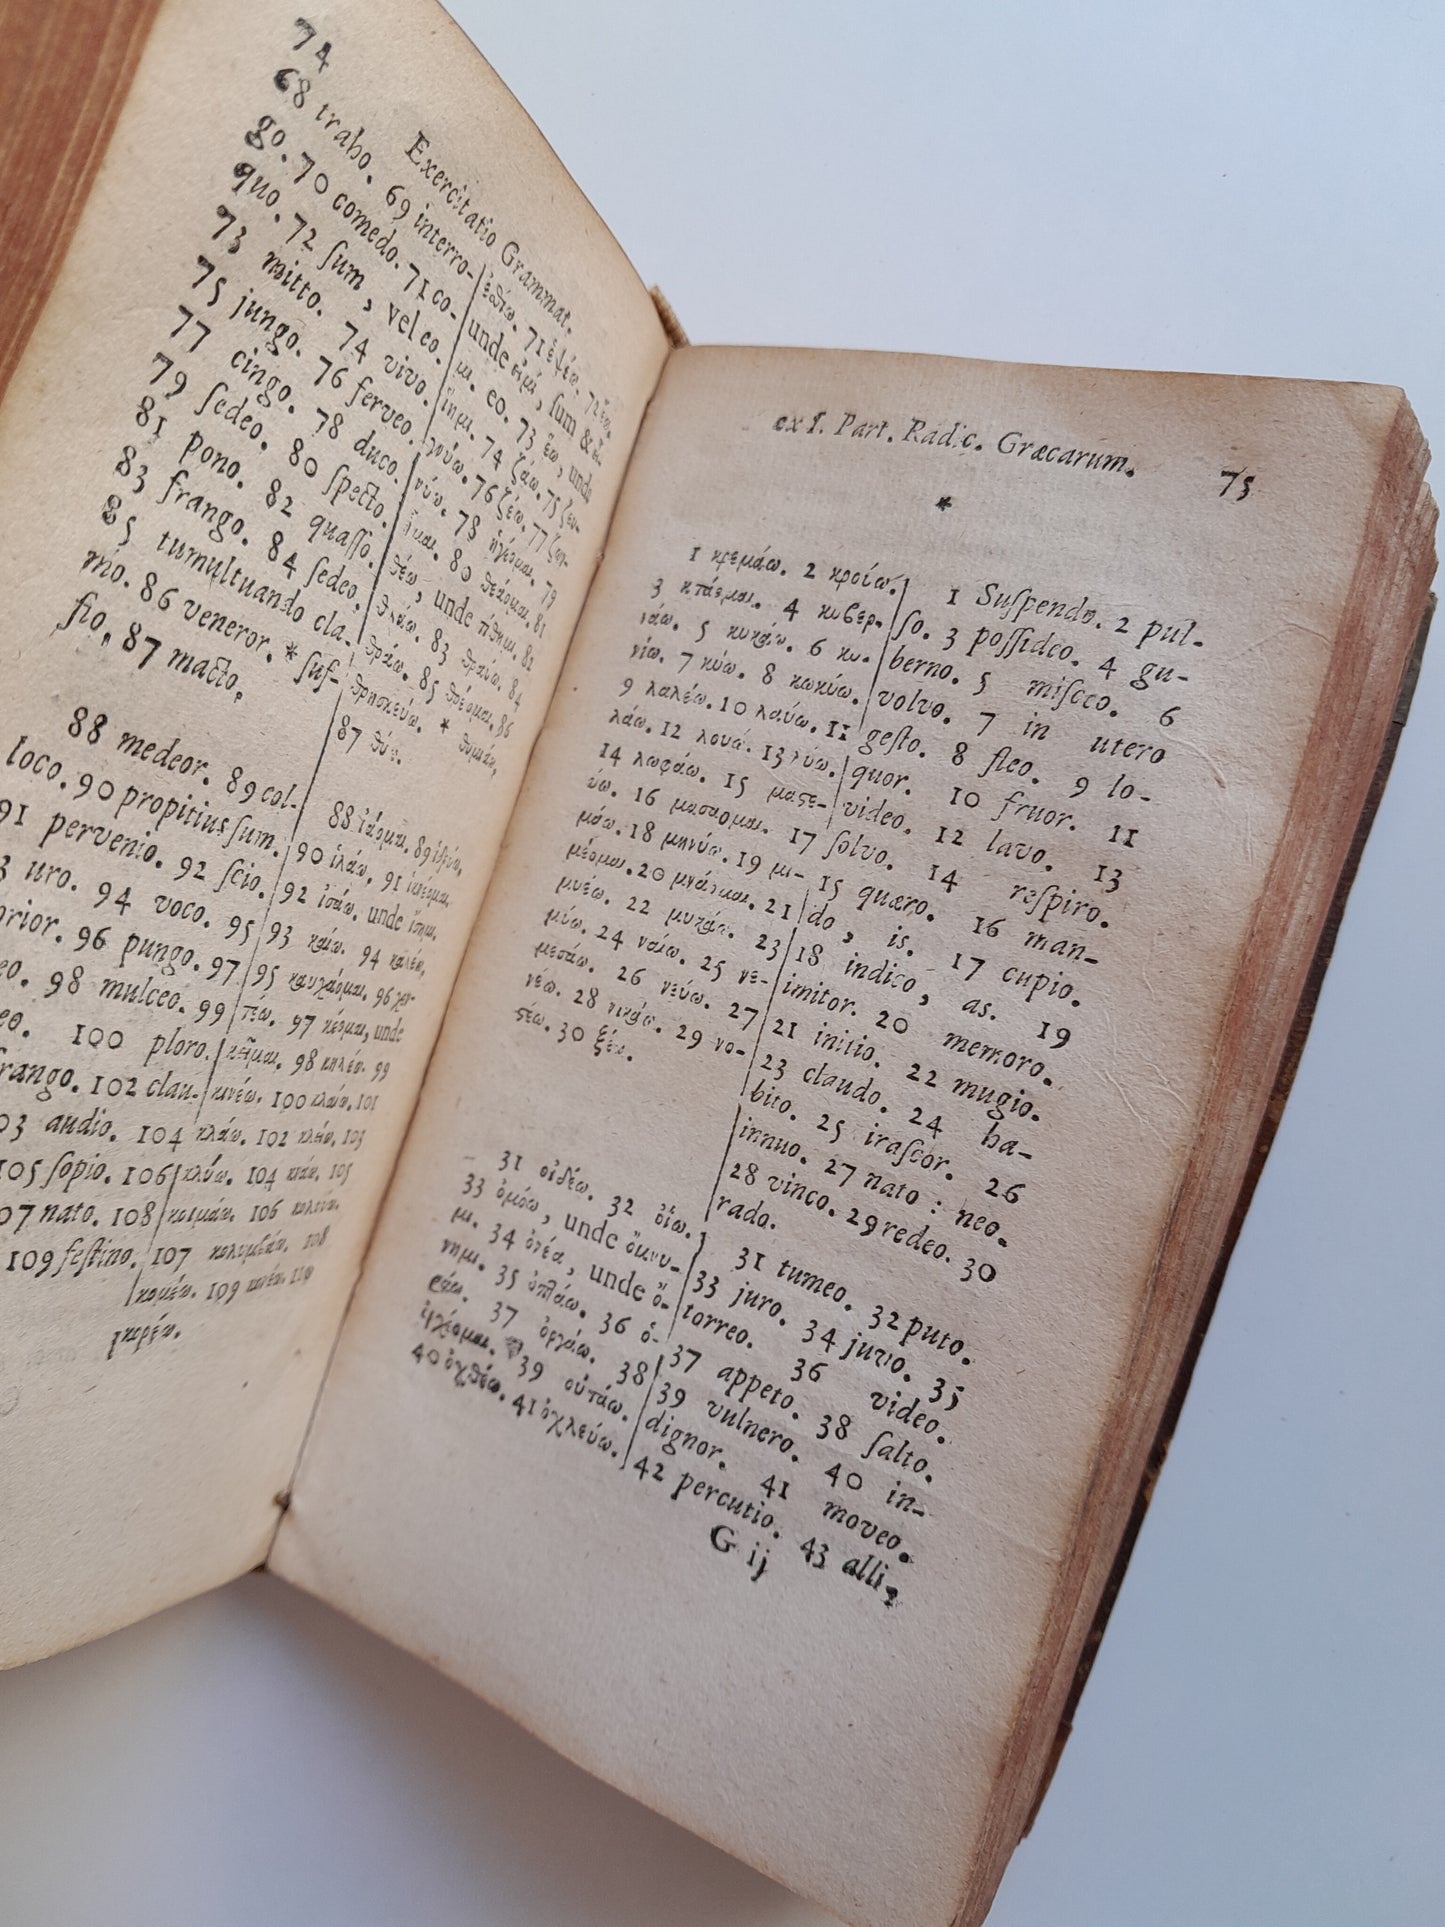 74
Exercitatio Grammat.
68 traho. 69 interro-
go. 70 comedo. 71 co-
quo. 72 ſum, vel eo.
73 mitto. 74 vivo.
75 jungo. 76 ferveo.
77 cingo. 78 duco.
79 ſedeo. 80 ſpecto.
81 pono. 82 quaſſo.
83 frango. 84 ſedeo.
85 tumultuando cla-
mo. 86 veneror. * ſuf-
fio. 87 macto.
88 medeor. 89 col-
loco. 90 propitius ſum.
91 pervenio. 92 ſcio.
uro. 94 voco. 95
96 pungo. 97
98 mulceo. 99
100 ploro.
102 clau-
audio. 104
105 ſopio. 106
nato. 108
109 feſtino.
71 ἑψέω. 72
unde εἰμί, ſum &
μι. eo. 73 ἕω, unde
ἵημι. 74 ζάω. 75 ζευ-
γνύω. 76 ζέω. 77 ζων-
νύω. 78 ἡγέομαι. 79
80 θεάομαι. 81
θέω, unde τίθημι. 82
θλάω. 83 θραύω. 84
85 θρέομαι. 86
θρησκεύω. * θυμιάω,
87 θύω.
88 ἰάομαι. 89
90 ἱλάω. 91
92 ἰσάω, unde ἴσημι.
93 καίω. 94 καλέω.
95 καυχάομαι. 96
97 κέομαι, unde
κεῖμαι. 98 κηλέω. 99
κινέω. 100 κλαίω. 101
κλάω. 102 103
κλύω. 104 105
κοιμάω. 106
107 κολυμβάω. 108
109
κορέω.
ex I. Part. Radic. Græcarum.
75
*
1 κρεμάω. 2 κρούω.
3 κτάομαι. 4 κυβερ-
νάω. 5 κυκάω. 6 κυ-
λίω. 7 κύω. 8 κωκύω.
9 λαλέω. 10 λαύω. 11
λάω. 12 λούω. 13 λύω.
14 λωφάω. 15 μαςε-
ύω. 16 μασάομαι. 17
μάω. 18 μηνύω. 19 μι-
μέομαι. 20 μνάομαι. 21
μυέω. 22 μυκάω. 23
μύω. 24 ναίω. 25 νε-
μεσάω. 26 νεύω. 27
νέω. 28 νικάω. 29 νο-
ςέω. 30 ξέω.
31 οἰδέω. 32 οἴω.
33 ὀμόω, unde ὄμνυ-
μι. 34 ὀνέω, unde ὄ-
νημι. 35 ὀπτάω. 36 ὁ-
ράω. 37 ὀργάω. 38
ὀρχέομαι. 39 οὐτάω.
40 ὀχθέω. 41 ὀχλεύω.
1 Suſpendo. 2 pul-
ſo. 3 poſſideo. 4 gu-
berno. 5 miſceo. 6
volvo. 7 in utero
geſto. 8 fleo. 9 lo-
quor. 10 fruor. 11
video. 12 lavo. 13
ſolvo. 14 reſpiro.
15 quæro. 16 man-
do, is. 17 cupio.
18 indico, as. 19
imitor. 20 memoro.
21 initio. 22 mugio.
23 claudo. 24 ha-
bito. 25 iraſcor. 26
innuo. 27 nato : neo.
28 vinco. 29 redeo. 30
rado.
31 tumeo. 32 puto.
33 juro. 34 juvo. 35
torreo. 36 video.
37 appeto. 38 ſalto.
39 vulnero. 40 in-
dignor. 41 moveo.
42 percutio. 43 alli-
G ij